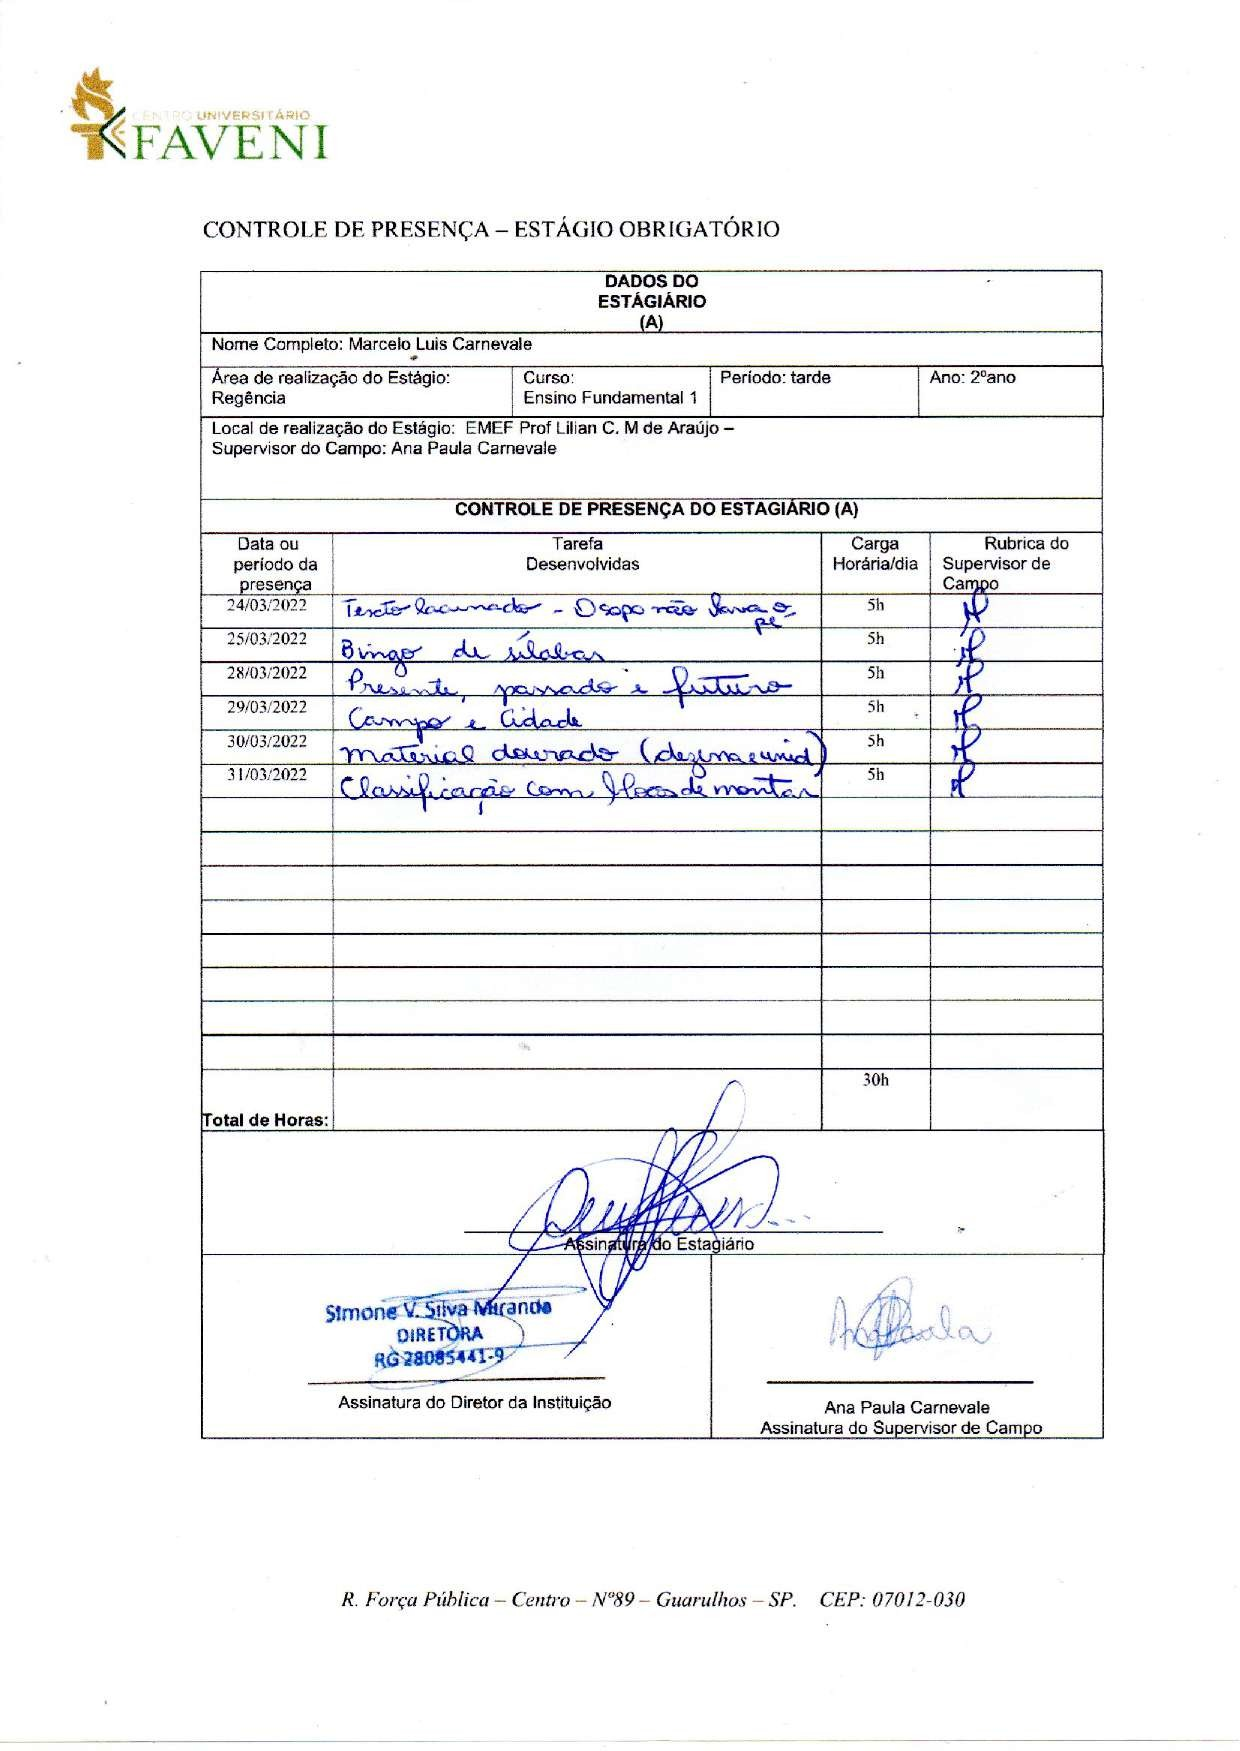 CENTRO UNIVERSITÁRIO
FAVENI
CONTROLE DE PRESENÇA – ESTÁGIO OBRIGATÓRIO
DADOS DO
ESTÁGIÁRIO
(A)
Nome Completo: Marcelo Luis Carnevale
Área de realização do Estágio:
Regência
Curso:
Ensino Fundamental 1
Período: tarde
Ano: 2ºano
Local de realização do Estágio: EMEF Prof Lilian C. M de Araújo –
Supervisor do Campo: Ana Paula Carnevale
CONTROLE DE PRESENÇA DO ESTAGIÁRIO (A)
Data ou
período da
presença
Tarefa
Desenvolvidas
Carga
Horária/dia
Rubrica do
Supervisor de
Campo
24/03/2022 Texto lacunado - O sapo não lava o pé 5h
25/03/2022 Bingo de sílabas 5h
28/03/2022 Presente, passado e futuro 5h
29/03/2022 Campo e Cidade 5h
30/03/2022 material dourado (dezena e unid) 5h
31/03/2022 Classificação com blocos de montar 5h
Total de Horas: 30h
Assinatura do Estagiário
Simone V. Silva Miranda
DIRETORA
RG 28085441-9
Assinatura do Diretor da Instituição
Ana Paula
Ana Paula Carnevale
Assinatura do Supervisor de Campo
R. Força Pública – Centro – Nº89 – Guarulhos – SP. CEP: 07012-030